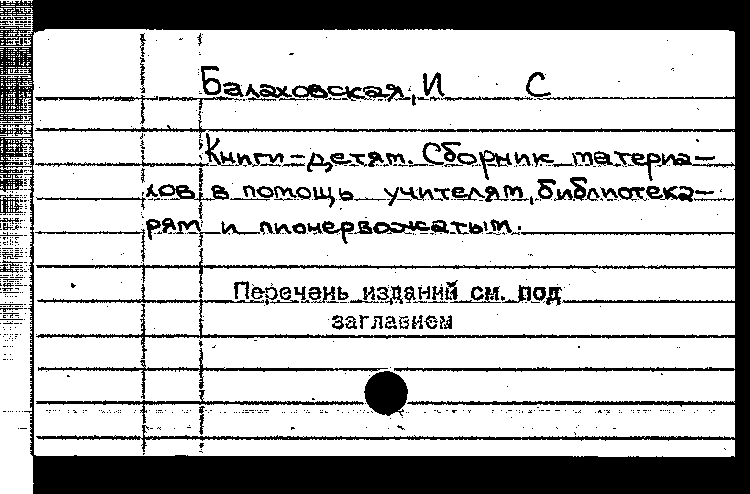 Балаховская, И С
Книги-детям. Сборник материа-
лов в помощь учителям, библиотека-
рям и пионервожатым.
Перечень изданий см. под
заглавием